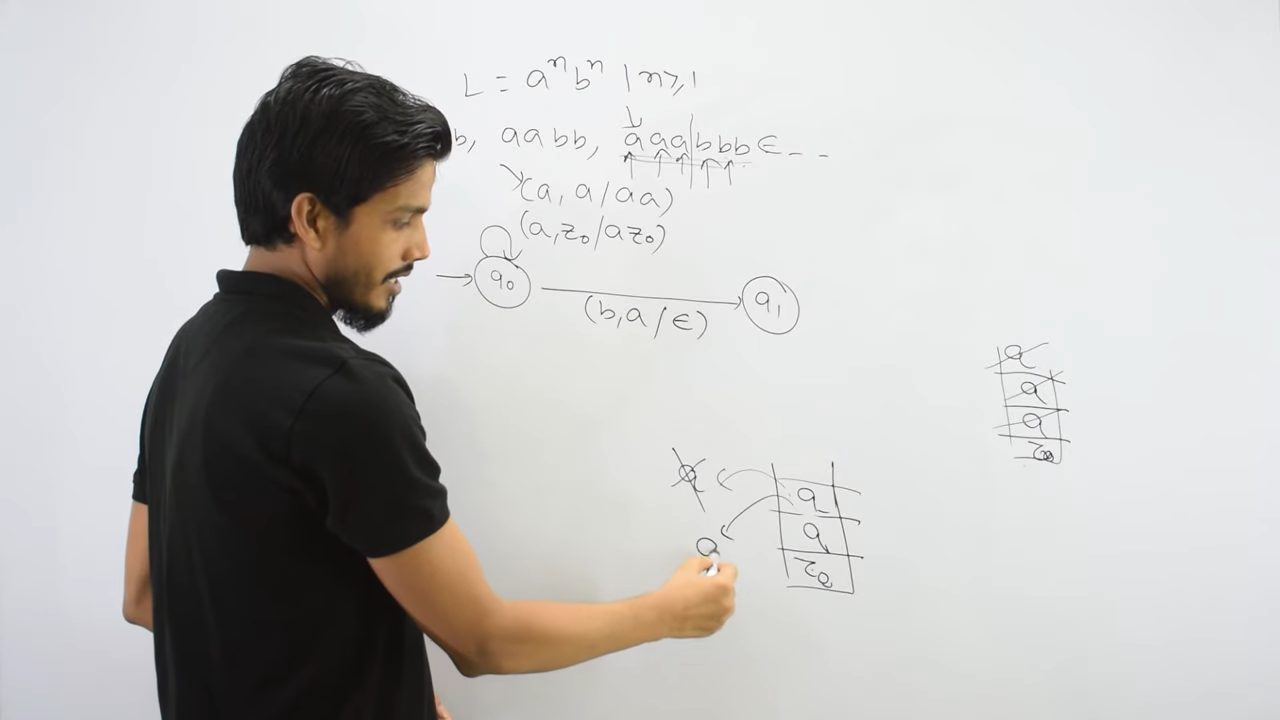 L = aⁿbⁿ | n≥1
b, aabb, aaa|bbb ∈ - -
(a, a/aa)
(a, z₀/az₀)
q₀
q₁
(b, a/ε)
a
a
a
z₀
a
a
a
a
z₀